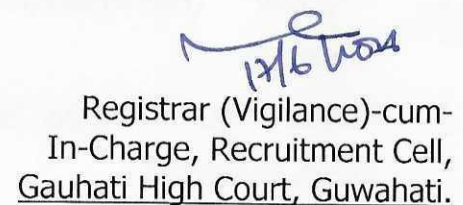 17/6
Registrar (Vigilance)-cum-
In-Charge, Recruitment Cell,
Gauhati High Court, Guwahati.